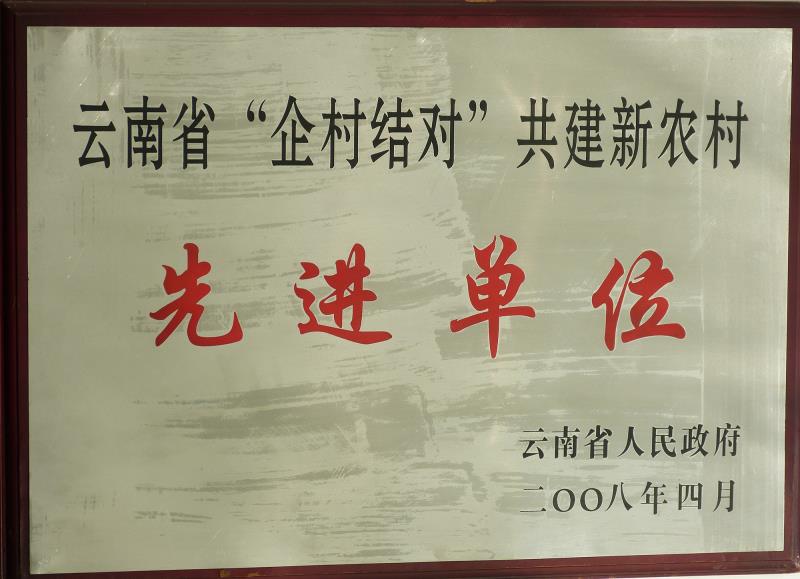 云南省“企村结对”共建新农村
先进单位
云南省人民政府
二〇〇八年四月